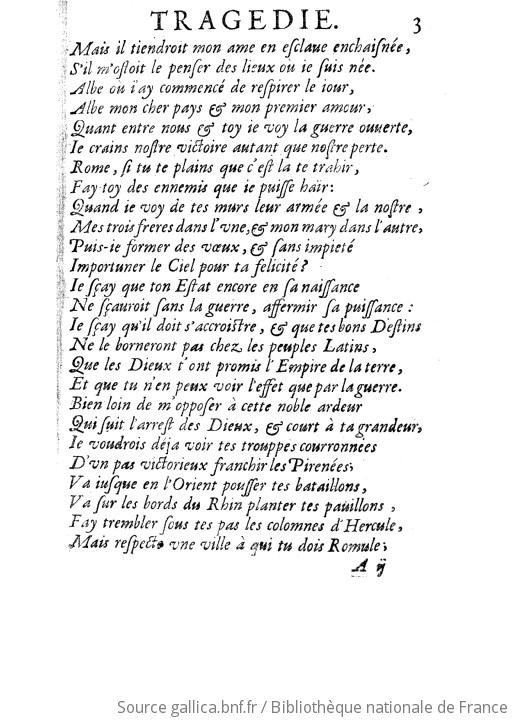 TRAGEDIE. 3
Mais il tiendroit mon ame en eſclaue enchaiſnée,
S'il m'oſtoit le penſer des lieux où ie ſuis née.
Albe où i'ay commencé de reſpirer le iour,
Albe mon cher pays & mon premier amour,
Quant entre nous & toy ie voy la guerre ouuerte,
Ie crains noſtre victoire autant que noſtre perte.
Rome, ſi tu te plains que c'eſt la te trahir,
Fay toy des ennemis que ie puiſſe haïr:
Quand ie voy de tes murs leur armée & la noſtre,
Mes trois freres dans l'vne, & mon mary dans l'autre,
Puis-ie former des vœux, & ſans impieté
Importuner le Ciel pour ta felicité?
Ie ſçay que ton Eſtat encore en ſa naiſſance
Ne ſçauroit ſans la guerre, affermir ſa puiſſance:
Ie ſçay qu'il doit s'accroiſtre, & que tes bons Deſtins
Ne le borneront pas chez les peuples Latins,
Que les Dieux t'ont promis l'Empire de la terre,
Et que tu n'en peux voir l'effet que par la guerre.
Bien loin de m'oppoſer à cette noble ardeur
Qui ſuit l'arreſt des Dieux, & court à ta grandeur,
Ie voudrois déja voir tes trouppes courronnées
D'vn pas victorieux franchir les Pirenées,
Va iuſque en l'Orient pouſſer tes bataillons,
Va ſur les bords du Rhin planter tes pauillons,
Fay trembler ſous tes pas les colomnes d'Hercule,
Mais reſpecte vne ville à qui tu dois Romule,
A ij
Source gallica.bnf.fr / Bibliothèque nationale de France